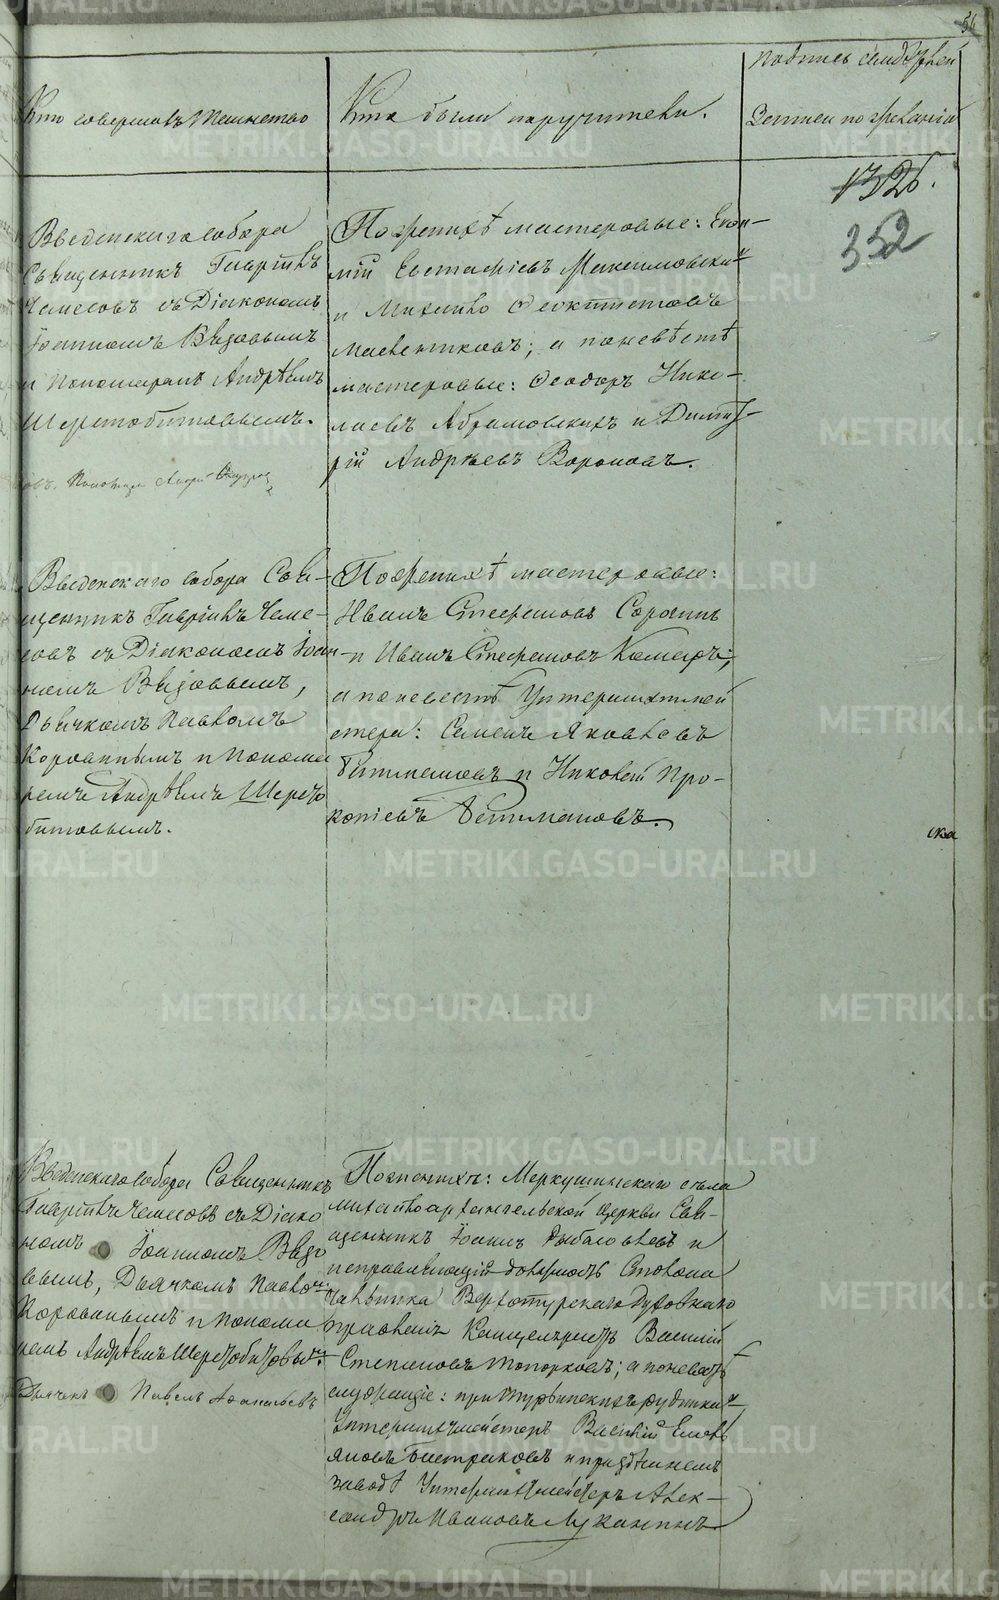 56
Кто совершалъ таинство
Кто были поручители.
Подпись свидѣтелей
записи по желанію
1326.
352
Введенскаго собора
Священникъ Гавріилъ
Чемесовъ съ Діакономъ
Іоанномъ Видовымъ
и Пономаремъ Андрѣемъ
Шеретобитовымъ.
Пономарь
По женихѣ мастеровые:
мій Евстафіевъ Максимовских
и Михайло Феоктистовъ
Масленниковъ; а по невѣстѣ
мастеровые: Феодоръ Нико-
лаевъ Абрамовскихъ и Димит-
рій Андрѣевъ Вороновъ.
Введенскаго собора Свя-
щенникъ Гавріилъ Чеме-
совъ съ Діакономъ Іоан-
номъ Видовымъ,
Дьячкомъ Павломъ
Короваинымъ и Понома
ремъ Андрѣемъ Шерето
битовымъ.
По женихѣ мастеровые:
Иванъ Стефановъ Сорокинъ
и Иванъ Стефановъ Комаръ;
а по невестѣ Унтершихтмей
стера: Семенъ Яковлевъ
и Николай Про-
копіевъ Гетмановъ.
Введенскаго собора Священникъ
Гавріилъ Чемесовъ съ Діако
номъ Іоанномъ Видо
вымъ, Дьячкомъ Павло
Короваинымъ и Понома
ремъ Андрѣемъ Шеретобитовы
Дьячекъ Павелъ
По женихѣ: Меркушинскаго села
Михайлоархангельской церкви Свя-
щенникъ Іоаннъ и
исправляющій должность Столона
чальника Верхотурскаго Духовнаго
правленія Канцеляристъ Василій
Степановъ Топорковъ; а по невестѣ
служащіе: при Турьинскихъ рудника
Унтершихтмейстеръ Василій Емель
яновъ Быстриковъ и при здѣшнемъ
заводѣ Унтершихтмейстеръ Алек-
сандръ Ивановъ Луканинъ
METRIKI.GASO-URAL.RU